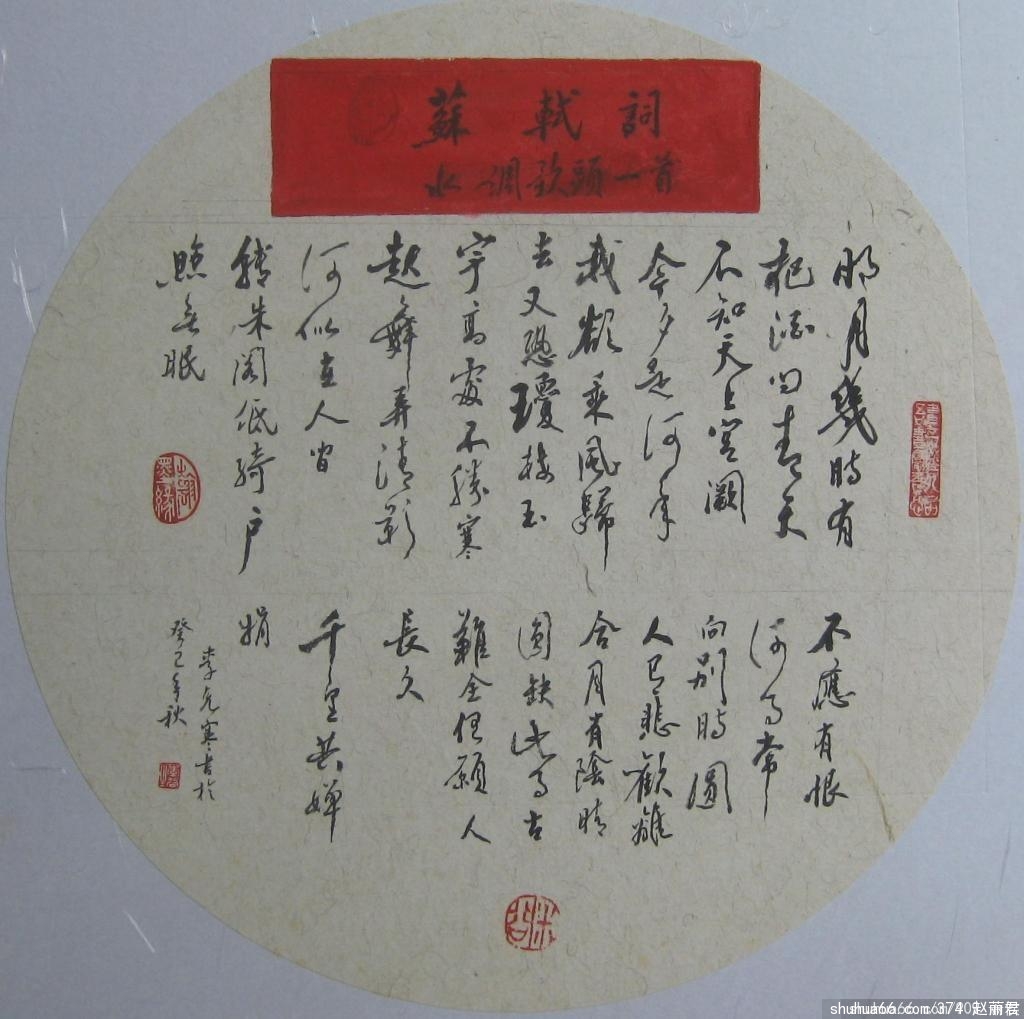 蘇軾詞
水調歌頭一首
明月幾時有
把酒问青天
不知天上宫闕
今夕是何年
我欲乘風歸
去又恐瓊楼玉
宇高處不勝寒
起舞弄清影
何似在人间
轉朱阁低綺户
照無眠
不應有恨
何事常
向别時圓
人有悲歡離
合月有陰晴
圓缺此事古
難全但願人
長久
千里共嬋
娟
癸巳年秋
李元寒书於
墨緣